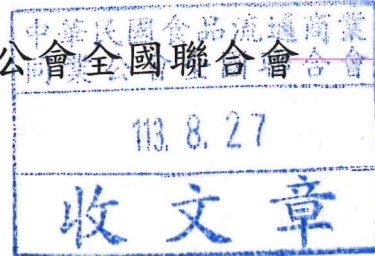 中華民國食品流通商業
公會全國聯合會
113. 8. 27
收文章